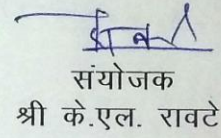 संयोजक
श्री के.एल. रावटे